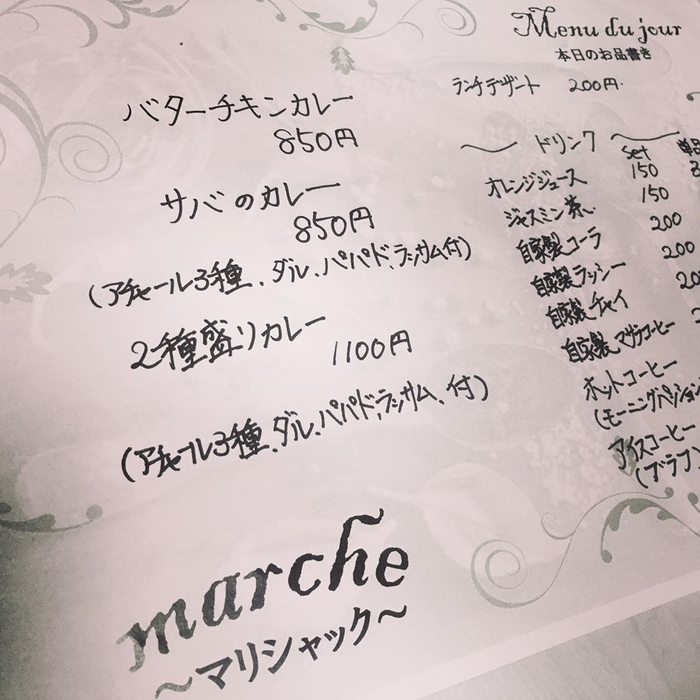 Menu du jour
本日のお品書き
ランチデザート 200円
バターチキンカレー
850円
サバのカレー
850円
(アチャール3種、ダル、パパド、ラッサム付)
2種盛りカレー
1100円
(アチャール3種、ダル、パパド、ラッサム、付)
〜ドリンク〜
set 単品
オレンジジュース 150
ジャスミン茶 150
自家製コーラ 200
自家製ラッシー 200
自家製チャイ
自家製マサラコーヒー
ホットコーヒー
(モーニングパッション
アイスコーヒー
(ブラフ
marche
〜マリシャック〜